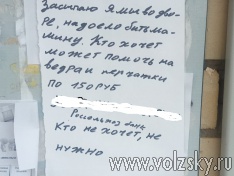 Засыпаю ямы во дво-
ре, надоело бить ма-
шину. Кто хочет
может помочь на
ведра и перчатки
по 150 руб
Кто не хочет, не
нужно
www.volzsky.ru